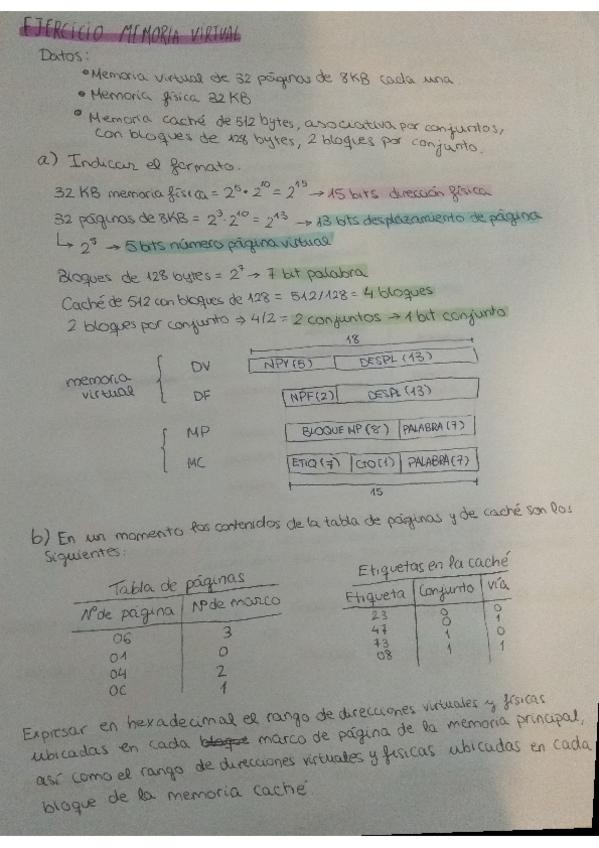 EJERCICIO MEMORIA VIRTUAL
Datos:
• Memoria virtual de 32 páginas de 8KB cada una.
• Memoria física 32 KB
• Memoria caché de 512 bytes, asociativa por conjuntos,
con bloques de 128 bytes, 2 bloques por conjunto.
a) Indicar el formato.
32 KB memoria física = 2⁵ · 2¹⁰ = 2¹⁵ → 15 bits dirección física
32 páginas de 8KB = 2³ · 2¹⁰ = 2¹³ → 13 bits desplazamiento de página
↳ 2⁵ → 5 bits número página virtual
Bloques de 128 bytes = 2⁷ → 7 bit palabra
Caché de 512 con bloques de 128 = 512/128 = 4 bloques
2 bloques por conjunto ⇒ 4/2 = 2 conjuntos → 1 bit conjunto
18
memoria virtual { DV NPV(5) DESPL(13)
DF NPF(2) DESPL(13)
{ MP BLOQUE MP(8) PALABRA(7)
MC ETIQ(7) CTO(1) PALABRA(7)
15
b) En un momento los contenidos de la tabla de páginas y de caché son los
siguientes:
Tabla de páginas
Nº de página Nº de marco
06 3
01 0
04 2
0C 1
Etiquetas en la caché
Etiqueta Conjunto vía
23 0 0
47 0 1
73 1 0
08 1 1
Expresar en hexadecimal el rango de direcciones virtuales y físicas
ubicadas en cada bloque marco de página de la memoria principal,
así como el rango de direcciones virtuales y físicas ubicadas en cada
bloque de la memoria caché.